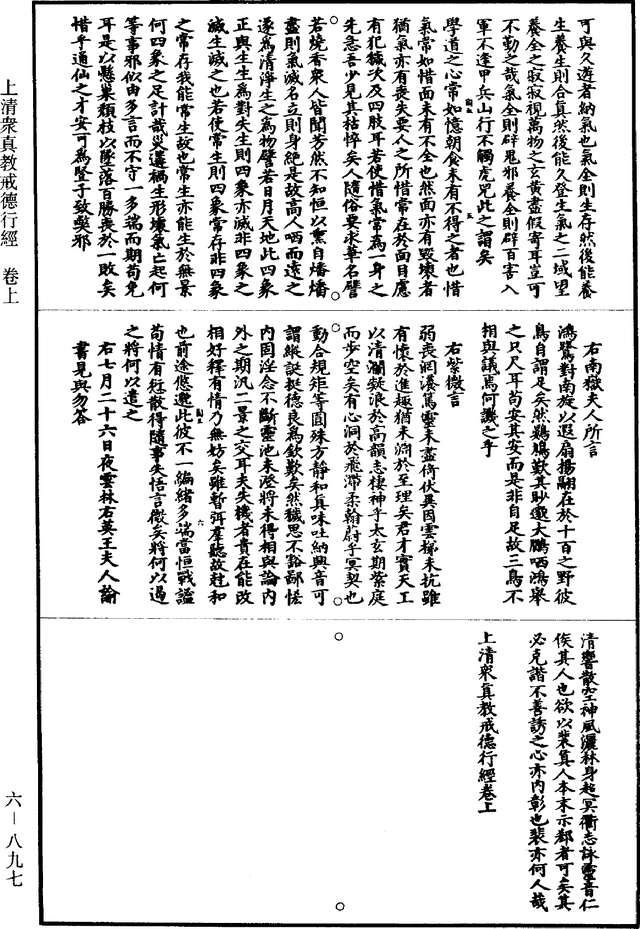 可與久遊者納氣也氣全則生存然後能養
生養生則合真然後能久登生氣之二域望
養全之寂寂視萬物之玄黃盡假寄耳豈可
不勤之哉氣全則辟鬼邪養全則辟百害入
軍不逢甲兵山行不觸虎兕此之謂矣
學道之心常如憶朝食未有不得之者也惜
氣常如惜面未有不全也然面亦有毀壞者
猶氣亦有喪失要人之所惜常在於面目慮
有犯穢次及四肢耳若使惜氣常為一身之
先急吾少見其枯悴矣人隨俗要求華名譬
若燒香衆人皆聞芳然不知恒以熏自燔燔
盡則氣滅名立則身絕是故高人哂而遠之
遂為清淨生之為物譬若日月天地此四象
正與生生為對失生則四象亦滅非四象之
滅生滅之也若使常生則四象常存非四象
之常存我能常生故也常生亦能生於無景
何四象之足計哉災遘禍生形壞氣亡起何
等事邪似由多言而不守一多端而期苟免
耳是以懸巢頹枝以墜落百勝喪於一敗矣
惜乎通仙之才安可為豎子致斃邪
右南嶽夫人所言
鴻鷺對南旋以遐扇揚翮在於十百之野彼
鳥自謂足矣然鷃鴳歎其眇邈大鵬哂鴻舉
之只尺耳苟安其安而是非自足故三鳥不
相與議焉何譏之乎
右紫微言
弱喪洄溱篤靈未盡倚伏異因雲梯未抗雖
有懷於進趣猶未淵於至理矣君才實天工
以清瀾鼓浪於高韻志棲神乎太玄期紫庭
而步空矣有心洞於飛滯柔翰蔚乎冥契也
動合規矩等圓殊方靜和真味吐納興音可
謂縱誕挺德良為欽歎矣然穢思不豁鄙恡
內固淫念不斷靈池未澄將未得相與論內
外之期汎二景之交耳夫失機者貴在能改
相好釋有情乃無妨矣雖暫弭羣聽故赴和
也前途悠邈此彼不一編緒多端當恒戰謐
苟情有愆散得隨事失悟言微矣將何以遏
之將何以遣之
右七月二十六日夜雲林右英王夫人諭
書見與勿答
清響散空神風灑林身超冥衢志詠靈音仁
俟其人也欲以裴真人本末示郗者可矣其
必克諧不善誘之心亦內彰也裴亦何人哉
上清衆真教戒德行經卷上
上清衆真教戒德行經 卷上
六－八九七